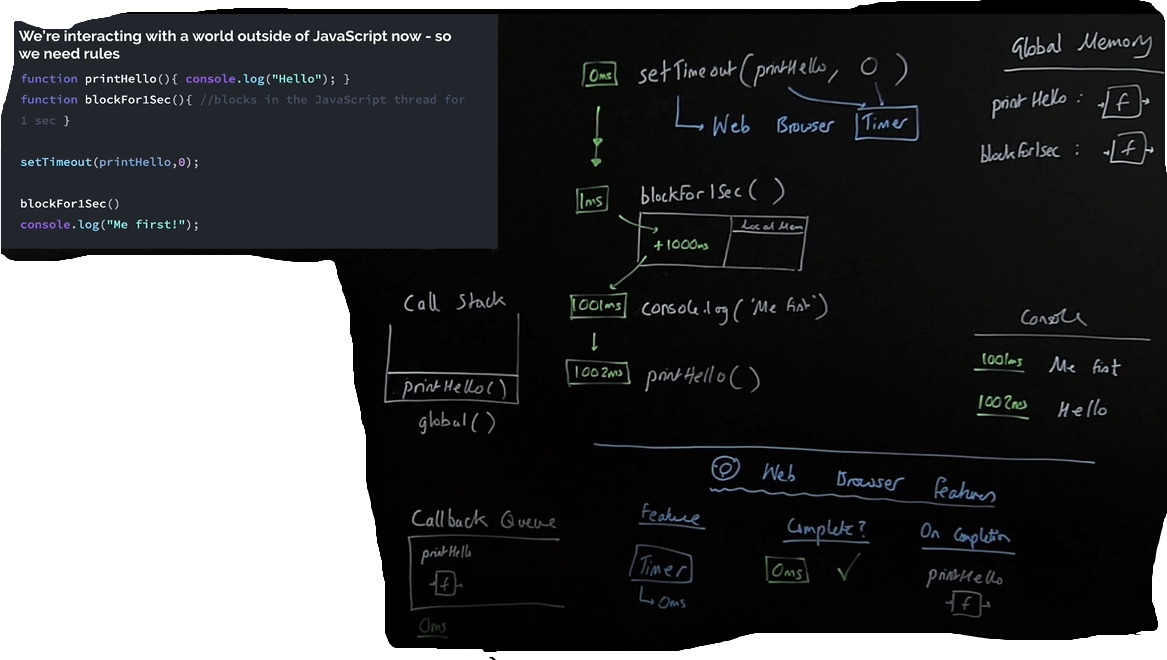 We're interacting with a world outside of JavaScript now - so
we need rules
function printHello(){ console.log("Hello"); }
function blockFor1Sec(){ //blocks in the JavaScript thread for
1 sec }
setTimeout(printHello,0);
blockFor1Sec()
console.log("Me first!");
0ms setTimeout(printHello, 0)
Web Browser Timer
1ms blockFor1Sec()
Local Mem
+1000ms
1001ms console.log('Me first')
1002ms printHello()
Global Memory
printHello : f
blockFor1sec : f
Call Stack
printHello()
global()
Console
1001ms Me first
1002ms Hello
Web Browser Features
Feature Complete? On Completion
Timer 0ms ✓ printHello
0ms f
Callback Queue
printHello
f
0ms